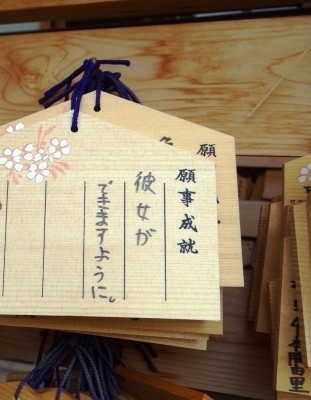 願事成就
彼女が
できますように。
願